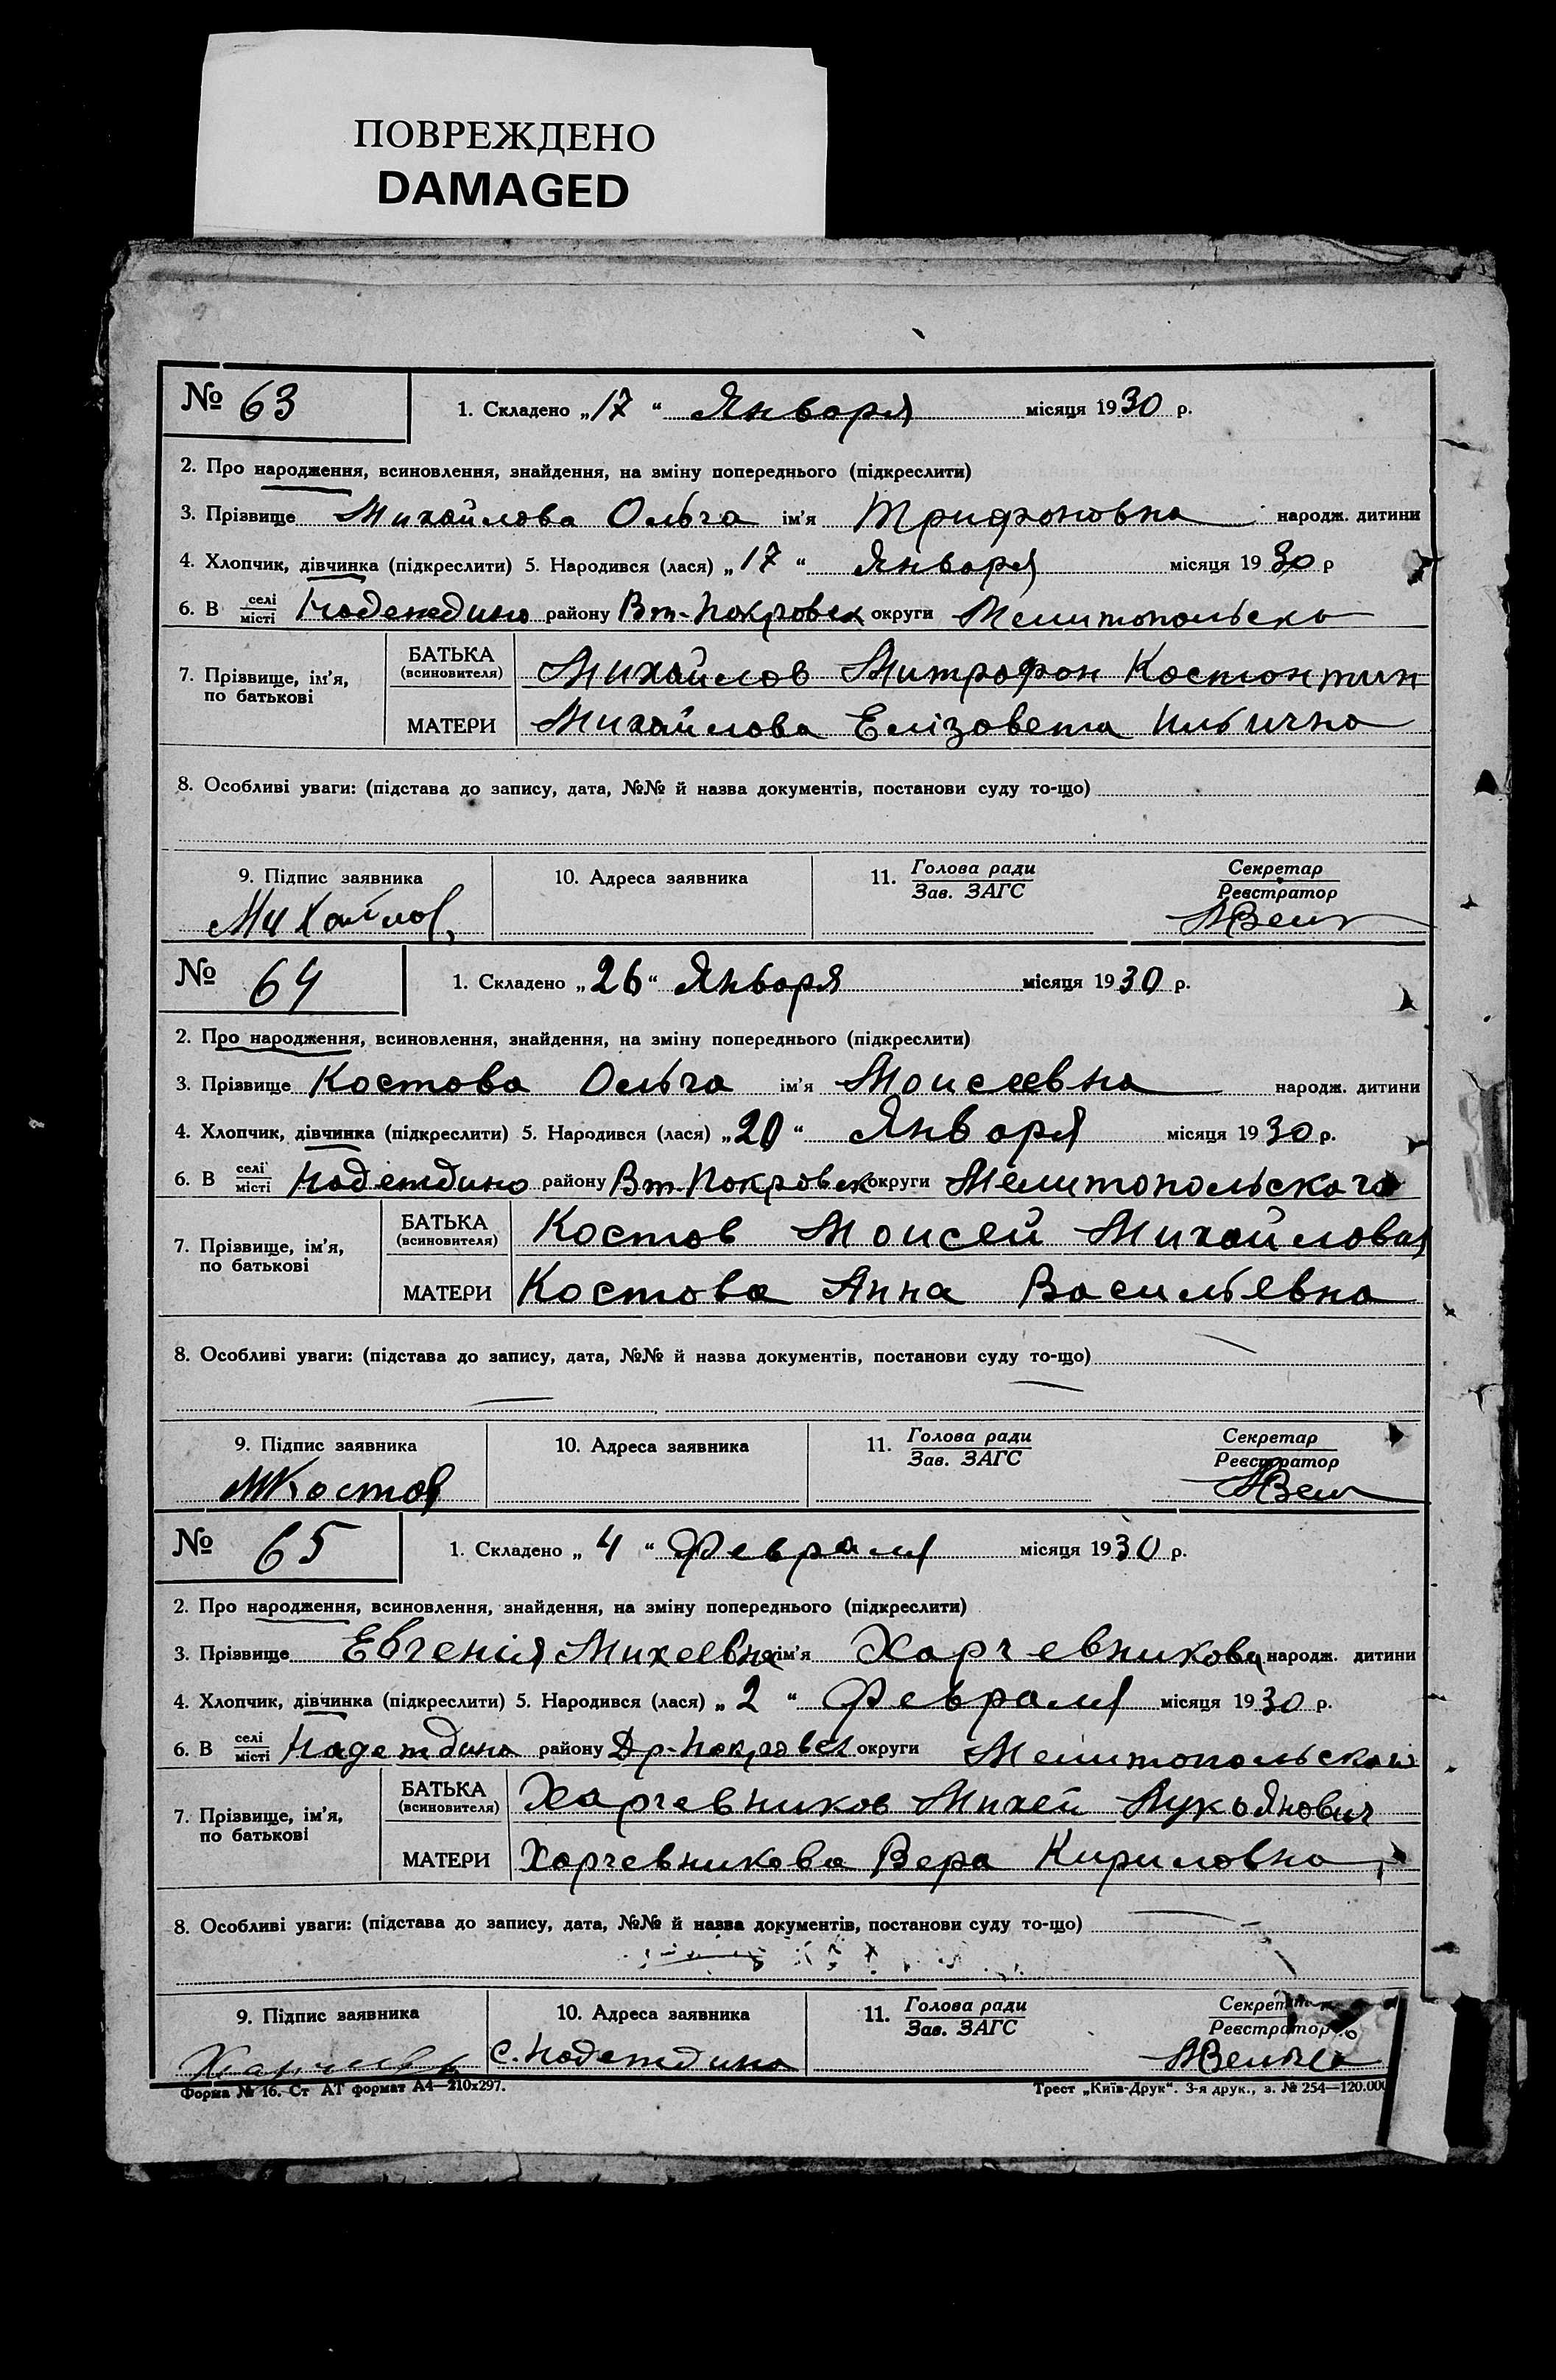 ПОВРЕЖДЕНО
DAMAGED
№ 63
1. Складено „17“ Января місяця 1930 р.
2. Про народження, всиновлення, знайдення, на зміну попереднього (підкреслити)
3. Прізвище Михайлова Ольга ім'я Трифоновна народж. дитини
4. Хлопчик, дівчинка (підкреслити) 5. Народився (лася) „17“ Января місяця 1930 р
6. В селі/місті Надеждино району Вт-Покровск округи Мелитопольско
7. Прізвище, ім'я, по батькові
БАТЬКА (всиновителя) Михайлов Митрофон Костонтин
МАТЕРИ Михайлова Елізовета Ильична
8. Особливі уваги: (підстава до запису, дата, №№ й назва документів, постанови суду то-що)
9. Підпис заявника 10. Адреса заявника 11. Голова ради/Зав. ЗАГС Секретар/Реєстратор
Михайлов
№ 64
1. Складено „26“ Января місяця 1930 р.
2. Про народження, всиновлення, знайдення, на зміну попереднього (підкреслити)
3. Прізвище Костова Ольга ім'я Моисеевна народж. дитини
4. Хлопчик, дівчинка (підкреслити) 5. Народився (лася) „20“ Января місяця 1930 р.
6. В селі/місті Надеждино району Вт-Покровск округи Мелитопольского
7. Прізвище, ім'я, по батькові
БАТЬКА (всиновителя) Костов Моисей Михайлович
МАТЕРИ Костова Анна Васильевна
8. Особливі уваги: (підстава до запису, дата, №№ й назва документів, постанови суду то-що)
9. Підпис заявника 10. Адреса заявника 11. Голова ради/Зав. ЗАГС Секретар/Реєстратор
МКостов
№ 65
1. Складено „4“ Февраля місяця 1930 р.
2. Про народження, всиновлення, знайдення, на зміну попереднього (підкреслити)
3. Прізвище Евгенія Михеевна ім'я Харчевникова народж. дитини
4. Хлопчик, дівчинка (підкреслити) 5. Народився (лася) „2“ Февраля місяця 1930 р.
6. В селі/місті Надеждино району Др-Покровск округи Мелитопольской
7. Прізвище, ім'я, по батькові
БАТЬКА (всиновителя) Харчевников Михей Лукоянович
МАТЕРИ Харчевникова Вера Кириловна
8. Особливі уваги: (підстава до запису, дата, №№ й назва документів, постанови суду то-що)
9. Підпис заявника 10. Адреса заявника 11. Голова ради/Зав. ЗАГС Секретар/Реєстратор
с. Надеждино
Форма № 16. Ст АТ формат А4—210x297. Трест „Київ-Друк“. 3-я друк., з. № 254—120.000